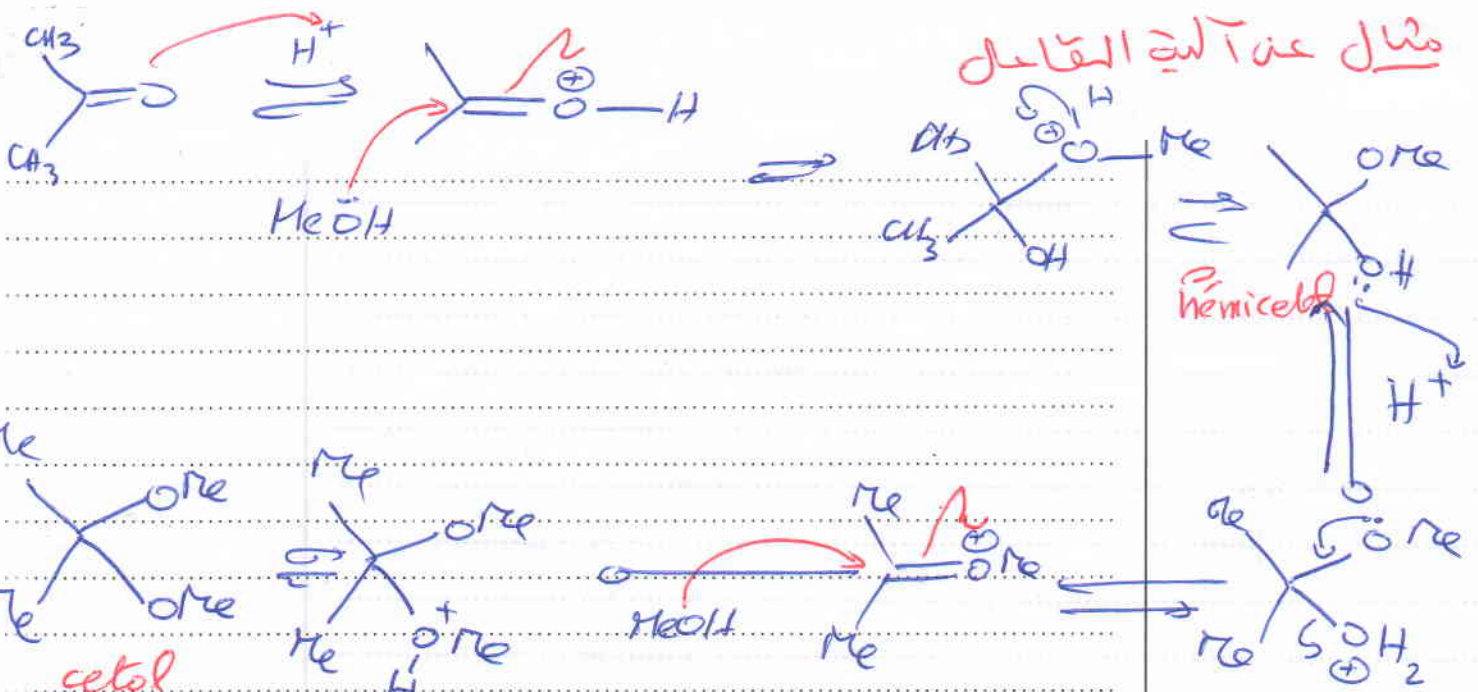 مثال عن آلية التفاعل
CH3
CH3
O
H+
⊕
O—H
MeÖH
CH3
CH3
⊕
O—Me
H
OH
OMe
ÖH
hémicetal
H+
Me
Me
OMe
OMe
cetol
Me
Me
OMe
O+Me
H
MeOH
Me
Me
⊕
OMe
Me
Me
ÖMe
OH2
⊕